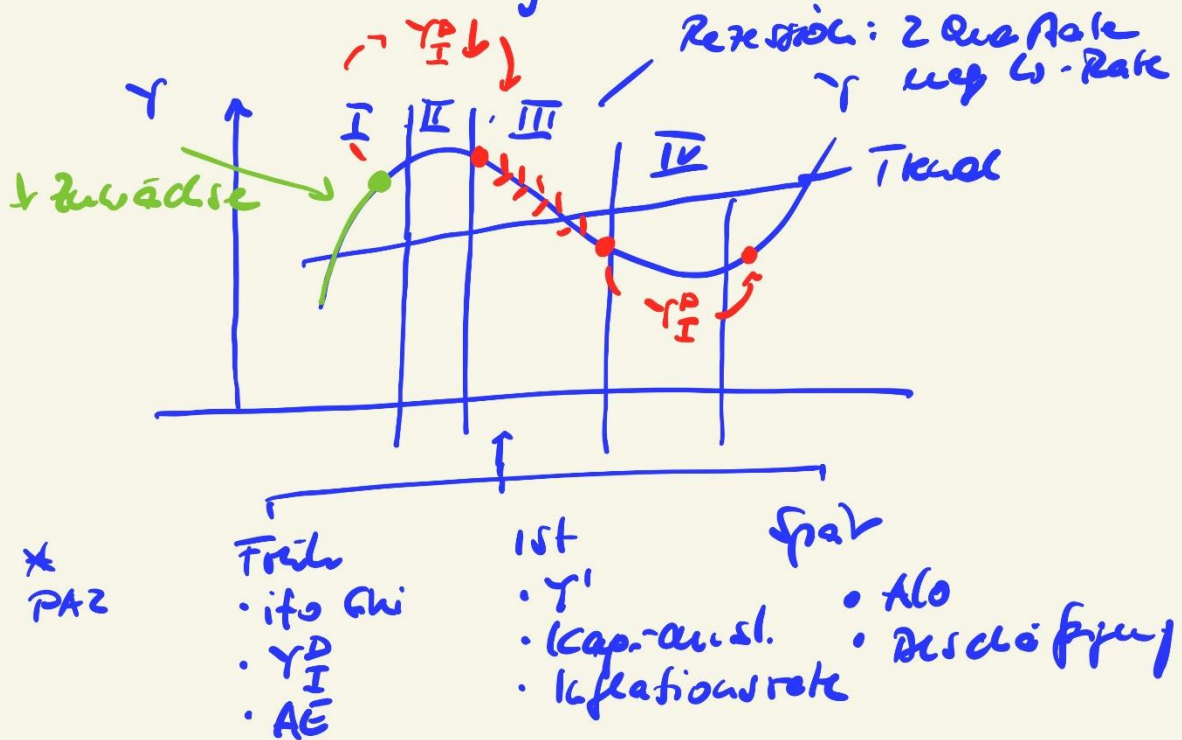 Y^D_I ↓
Rezession: 2 Quartale
neg W-Rate
Y
Y
I II III IV
Trend
↓ Zuwächse
Y^D_I
*
PAZ
Früh
• ifo Gki
• Y^D_I
• AE
Ist
• Y'
• Kap.-ausl.
• Inflationsrate
Spät
• Alo
• Beschäftigung